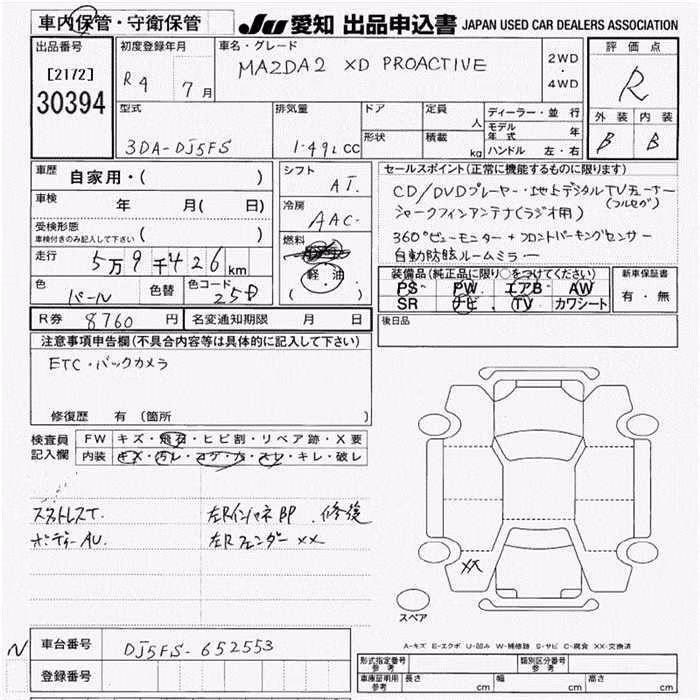 車内保管・守衛保管
JU 愛知 出品申込書 JAPAN USED CAR DEALERS ASSOCIATION
出品番号
[2172]
30394
初度登録年月
R4 7月
車名・グレード
MAZDA2 XD PROACTIVE
2WD
・
4WD
評価点
R
外装 内装
B B
型式
3DA-DJ5FS
排気量
1.49L CC
ドア
形状
定員 人
積載 kg
ディーラー・並行
モデル年式 年
ハンドル 左・右
車歴 自家用・( )
車検 年 月( 日)
受検形態
車検付きのみ記入して下さい ( )
走行 5万9千426km
色 パール 色替 色コード 25D
シフト AT.
冷房 AAC.
燃料
(軽・油)
セールスポイント(正常に機能するものに限ります)
CD/DVDプレーヤー・地上デジタルTVチューナー
(フルセグ)
シャークフィンアンテナ(ラジオ用)
360°ビューモニター+フロントパーキングセンサー
自動防眩ルームミラー
装備品(純正品に限り○をつけてください)
PS PW エアB AW
SR ナビ TV カワシート
新車保証書
有・無
R券 8760円 名変通知期限 月 日
後日品
注意事項申告欄(不具合内容等は具体的に記入して下さい)
ETC・バックカメラ
修復歴 有(箇所 )
検査員記入欄
FW キズ・飛石・ヒビ割・リペア跡・X要
内装 キズ・汚レ・コゲ・カ・スレ・キレ・破レ
スタットレスT. 左Rインパネ部.修復
ボディーAU. 左Rフェンダー××
XX
スペア
A-キズ E-エクボ U-凹み W-補修跡 S-サビ C-腐食 XX-交換済
N 車台番号 DJ5FS-652553
登録番号
形式指定番号 参考
類別区分番号 参考
車庫証明用 参考 長さ cm 幅 cm 高さ cm